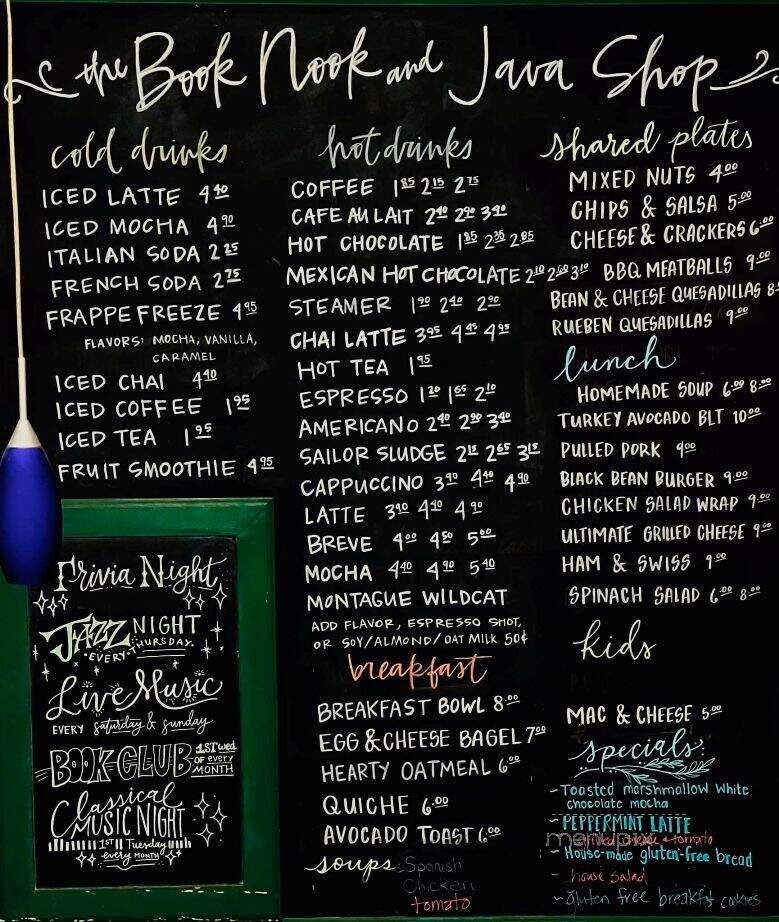 the Book Nook and Java Shop
cold drinks
ICED LATTE 4 40
ICED MOCHA 4 90
ITALIAN SODA 2 25
FRENCH SODA 2 75
FRAPPE FREEZE 4 95
FLAVORS: MOCHA, VANILLA,
CARAMEL
ICED CHAI 4 40
ICED COFFEE 1 95
ICED TEA 1 95
FRUIT SMOOTHIE 4 95
Trivia Night
JAZZ NIGHT
• EVERY • THURSDAY •
Live Music
EVERY saturday & sunday
BOOK CLUB 1ST wed
OF every
MONTH
Classical
MUSIC NIGHT
1ST Tuesday
every MONTH
hot drinks
COFFEE 1 85 2 15 2 75
CAFE AU LAIT 2 40 2 90 3 40
HOT CHOCOLATE 1 85 2 35 2 85
MEXICAN HOT CHOCOLATE 2 10 2 60 3 10
STEAMER 1 90 2 40 2 90
CHAI LATTE 3 95 4 45 4 95
HOT TEA 1 95
ESPRESSO 1 20 1 65 2 10
AMERICANO 2 40 2 90 3 40
SAILOR SLUDGE 2 15 2 65 3 15
CAPPUCCINO 3 90 4 40 4 90
LATTE 3 90 4 40 4 90
BREVE 4 00 4 50 5 00
MOCHA 4 40 4 90 5 40
MONTAGUE WILDCAT
ADD FLAVOR, ESPRESSO SHOT,
OR SOY/ALMOND/OAT MILK 50¢
breakfast
BREAKFAST BOWL 8.00
EGG & CHEESE BAGEL 7.00
HEARTY OATMEAL 6.00
QUICHE 6.00
AVOCADO TOAST 6.00
soups: Spanish
Chicken
tomato
shared plates
MIXED NUTS 4.00
CHIPS & SALSA 5.00
CHEESE & CRACKERS 6.00
BBQ MEATBALLS 9.00
BEAN & CHEESE QUESADILLAS 8.
RUEBEN QUESADILLAS 9.00
lunch
HOMEMADE SOUP 6.00 8.00
TURKEY AVOCADO BLT 10.00
PULLED PORK 9.00
BLACK BEAN BURGER 9.00
CHICKEN SALAD WRAP 9.00
ULTIMATE GRILLED CHEESE 9.00
HAM & SWISS 9.00
SPINACH SALAD 6.00 8.00
kids
MAC & CHEESE 5.00
specials:
~Toasted marshmallow white
chocolate mocha
~PEPPERMINT LATTE
tomato
~House-made gluten-free bread
~ house salad
~gluten free breakfast cookies